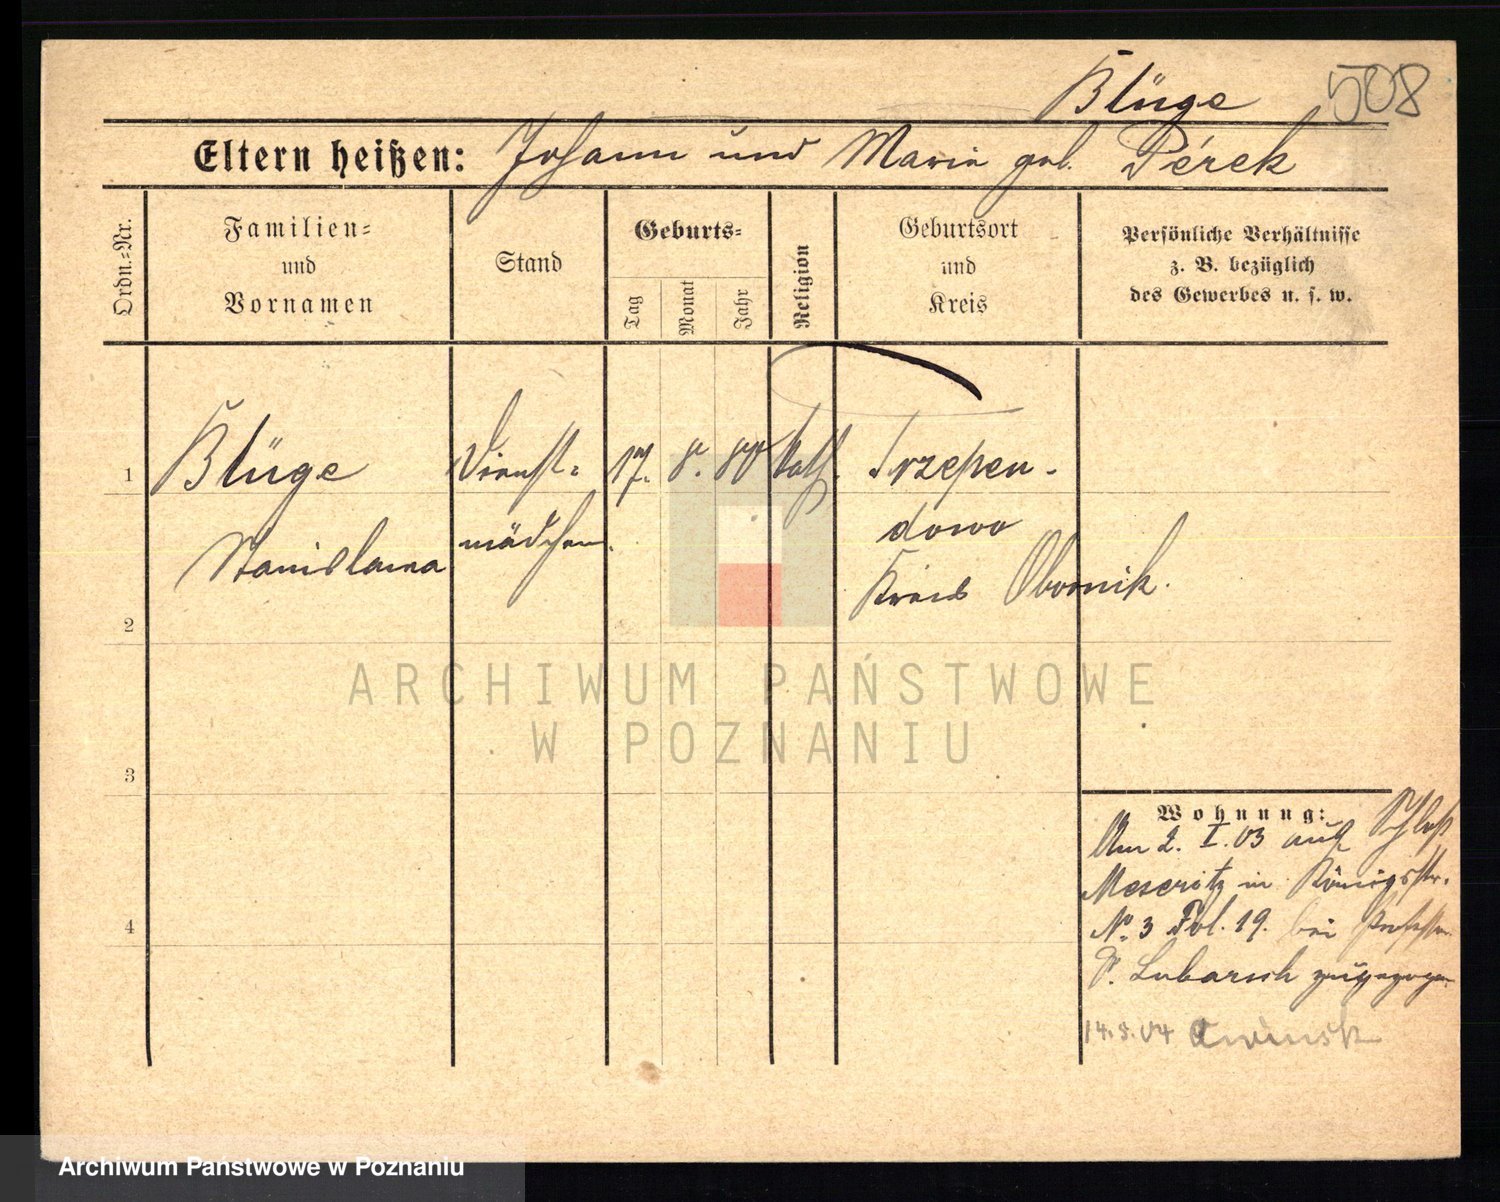 Blüge 508
Eltern heißen: Johann und Marie geb. Pérek
Ordn.=Nr.
Familien=
und
Vornamen
Stand
Geburts=
Tag
Monat
Jahr
Religion
Geburtsort
und
Kreis
Persönliche Verhältnisse
z. B. bezüglich
des Gewerbes u. s. w.
1 Blüge Dienst= 17. 8. 80 Kath. Trzepen-
Stanislawa mädchen. dowo
Kreis Obornik.
2
3
4
Wohnung:
Am 2. I. 03 aus Schloß
Meseritz in Königsstr.
No. 3 Fol. 19. bei Professor
Lubarsch zugezogen
14.8.04
ARCHIWUM PAŃSTWOWE
W POZNANIU
Archiwum Państwowe w Poznaniu